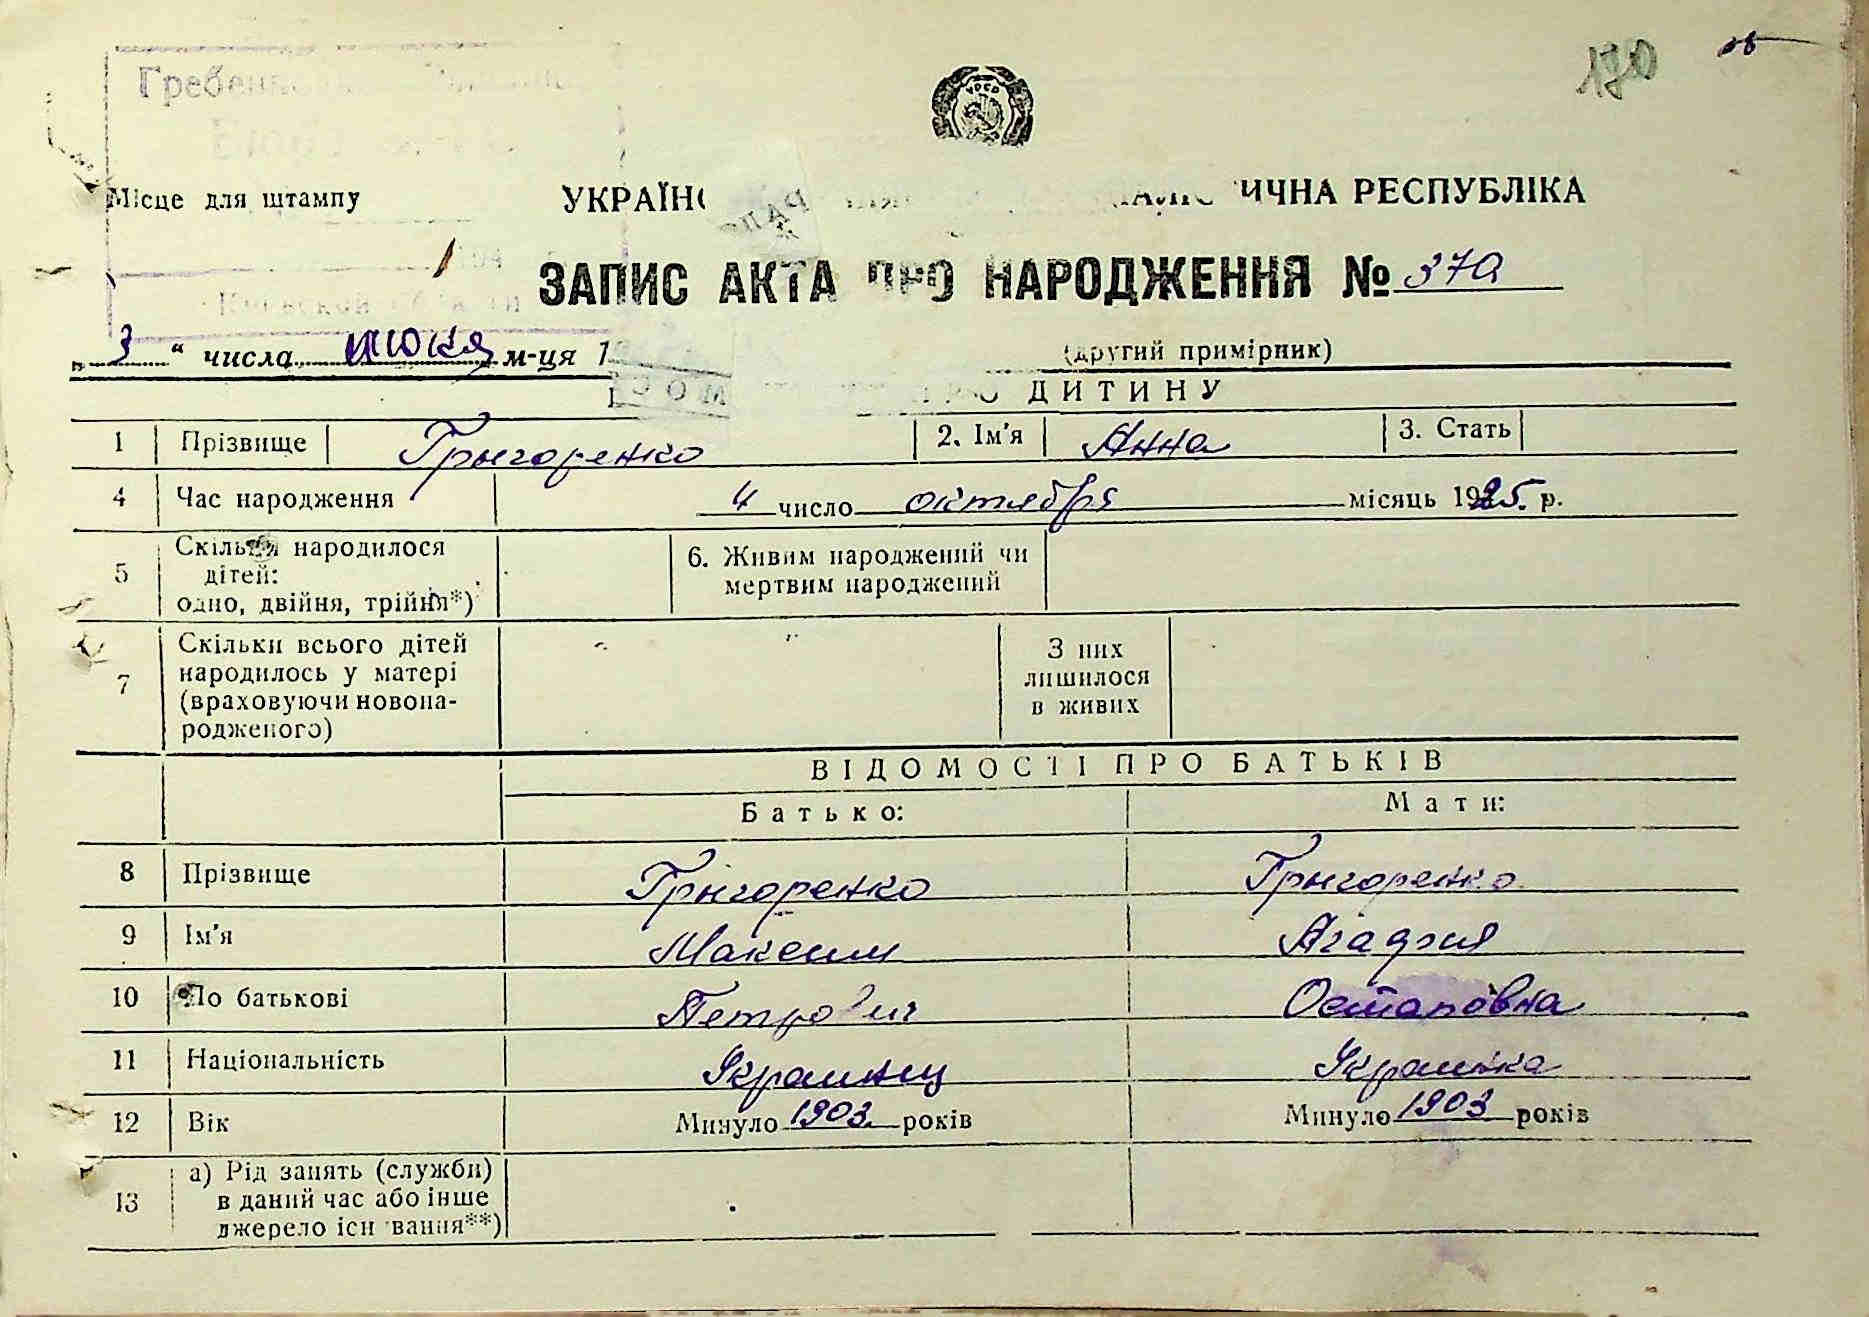 170
Гребенк
УРСР
Місце для штампу
УКРАЇНС ИЧНА РЕСПУБЛІКА
ЗАПИС АКТА ПРО НАРОДЖЕННЯ № 370
„ 3 “ числа июля м-ця 1
(другий примірник)
ДИТИНУ
1 Прізвище Григоренко 2. Ім'я Анна 3. Стать
4 Час народження 4 число октября місяць 1925. р.
5 Скільки народилося
дітей:
одно, двійня, трійня*)
6. Живим народжений чи
мертвим народжений
7 Скільки всього дітей
народилось у матері
(враховуючи новона-
родженого)
З них
лишилося
в живих
ВІДОМОСТІ ПРО БАТЬКІВ
Батько: Мати:
8 Прізвище Григоренко Григоренко
9 Ім'я Максим Агафия
10 По батькові Петрович Остаповна
11 Національність Украинец Украинка
12 Вік Минуло 1903 років Минуло 1903 років
13 а) Рід занять (служби)
в даний час або інше
джерело існування**)